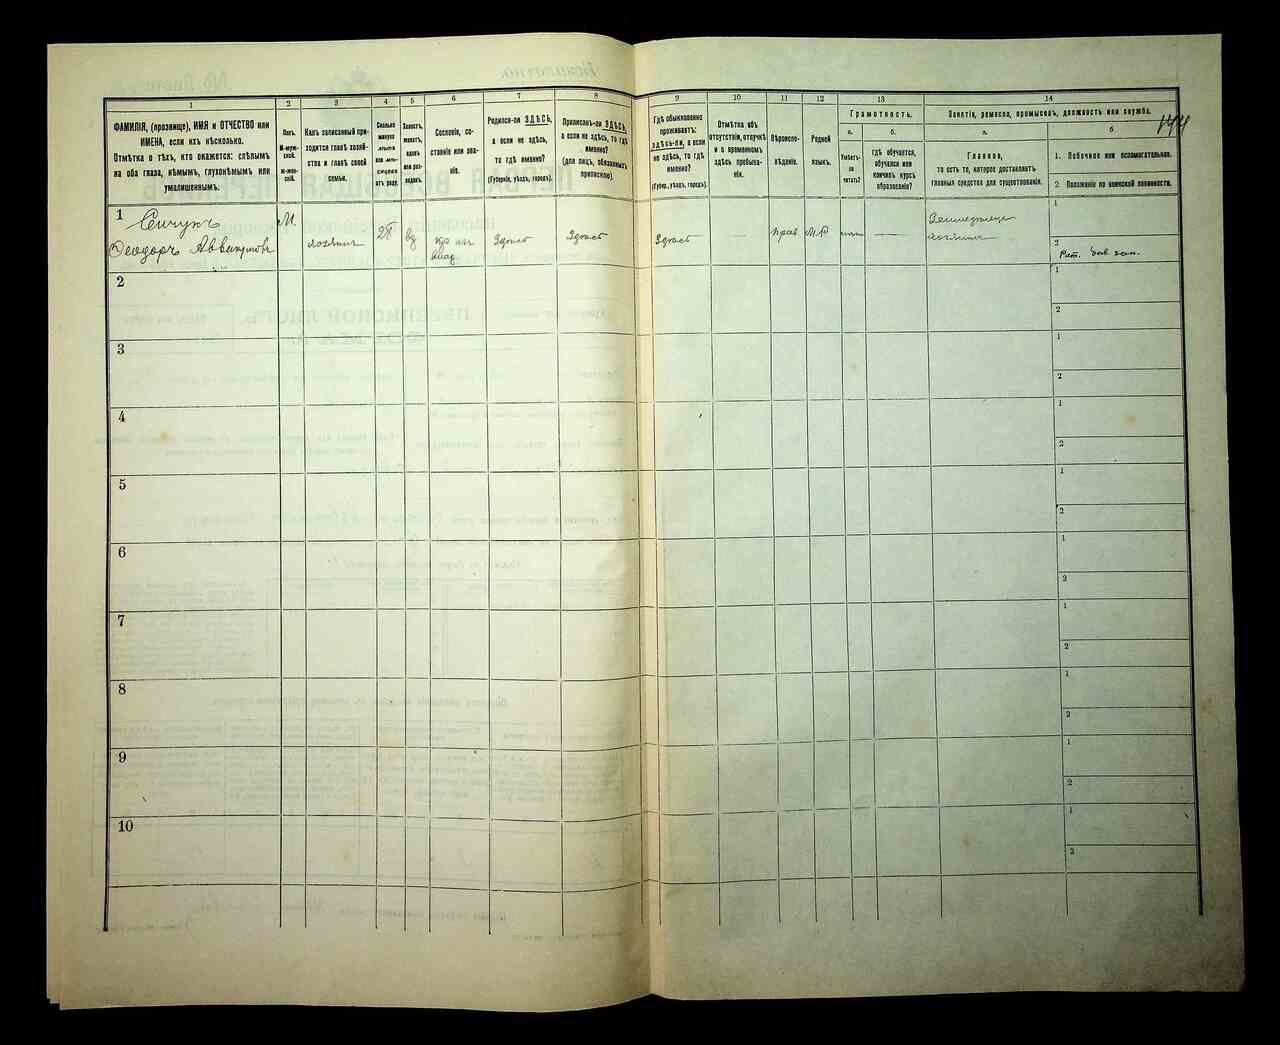 1
2
3
4
5
6
7
8
9
10
11
12
13
14
ФАМИЛІЯ, (прозвище), ИМЯ и ОТЧЕСТВО или
ИМЕНА, если ихъ нѣсколько.
Отмѣтка о тѣхъ, кто окажется: слѣпымъ
на оба глаза, нѣмымъ, глухонѣмымъ или
умалишеннымъ.
Полъ.
М-муж-
ской.
Ж-жен-
скій.
Какъ записанный при-
ходится главѣ хозяй-
ства и главѣ своей
семьи.
Сколько
минуло
лѣтъ
или мѣ-
сяцевъ
отъ роду.
Холостъ,
женатъ,
вдовъ
или раз-
веденъ.
Сословіе, со-
стояніе или зва-
ніе.
Родился-ли ЗДѢСЬ,
а если не здѣсь,
то гдѣ именно?
(Губернія, уѣздъ, городъ).
Приписанъ-ли ЗДѢСЬ,
а если не здѣсь, то гдѣ
именно?
(для лицъ, обязанныхъ
припискою).
Гдѣ обыкновенно
проживаетъ:
здѣсь-ли, а если
не здѣсь, то гдѣ
именно?
(Губер., уѣздъ, городъ).
Отмѣтка объ
отсутствіи, отлучкѣ
и о временномъ
здѣсь пребыва-
ніи.
Вѣроиспо-
вѣданіе.
Родной
языкъ.
Грамотность.
а.
Умѣетъ-
ли
читать?
б.
гдѣ обучается,
обучался или
кончилъ курсъ
образованія?
Занятіе, ремесло, промыселъ, должность или служба.
144
а.
Главное,
то есть то, которое доставляетъ
главныя средства для существованія.
б
1. Побочное или вспомогательное.
2. Положеніе по воинской повинности.
1
М
Ѳеодоръ
хозяинъ
28
вд
кр изъ
Здѣсь
Здѣсь
Здѣсь
—
прав
—
хозяинъ
1
2
2
1
2
3
1
2
4
1
2
5
1
2
6
1
2
7
1
2
8
1
2
9
1
2
10
1
2